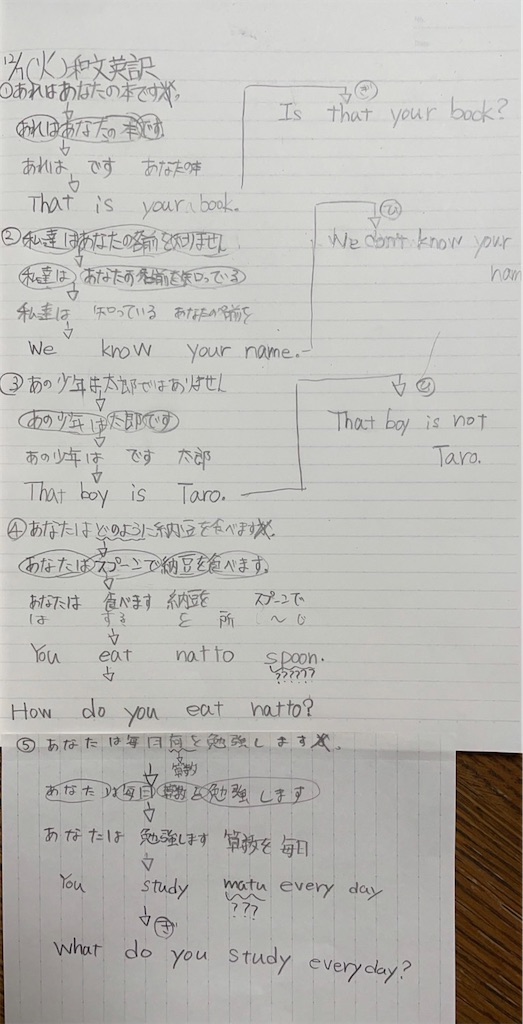 12/7(火)和文英訳
①あれはあなたの本です
ぎ
Is that your book?
あれはあなたの本です
あれは です あなたの本
That is your book.
②私達はあなたの名前を知りません
ひ
We don't know your
nam
私達は あなたの名前を知っている
私達は 知っている あなたの名前を
We know your name.
③あの少年は太郎ではありません
ひ
That boy is not
Taro.
あの少年は太郎です
あの少年は です 太郎
That boy is Taro.
④あなたはどのように納豆を食べます
あなたはスプーンで納豆を食べます。
あなたは 食べます 納豆を スプーンで
は する を 所 〜
You eat natto spoon.
??????
How do you eat natto?
⑤あなたは毎日何を勉強します
算数
あなたは毎日算数を勉強します
あなたは 勉強します 算数を 毎日
You study matu every day
???
ぎ
What do you study everyday?